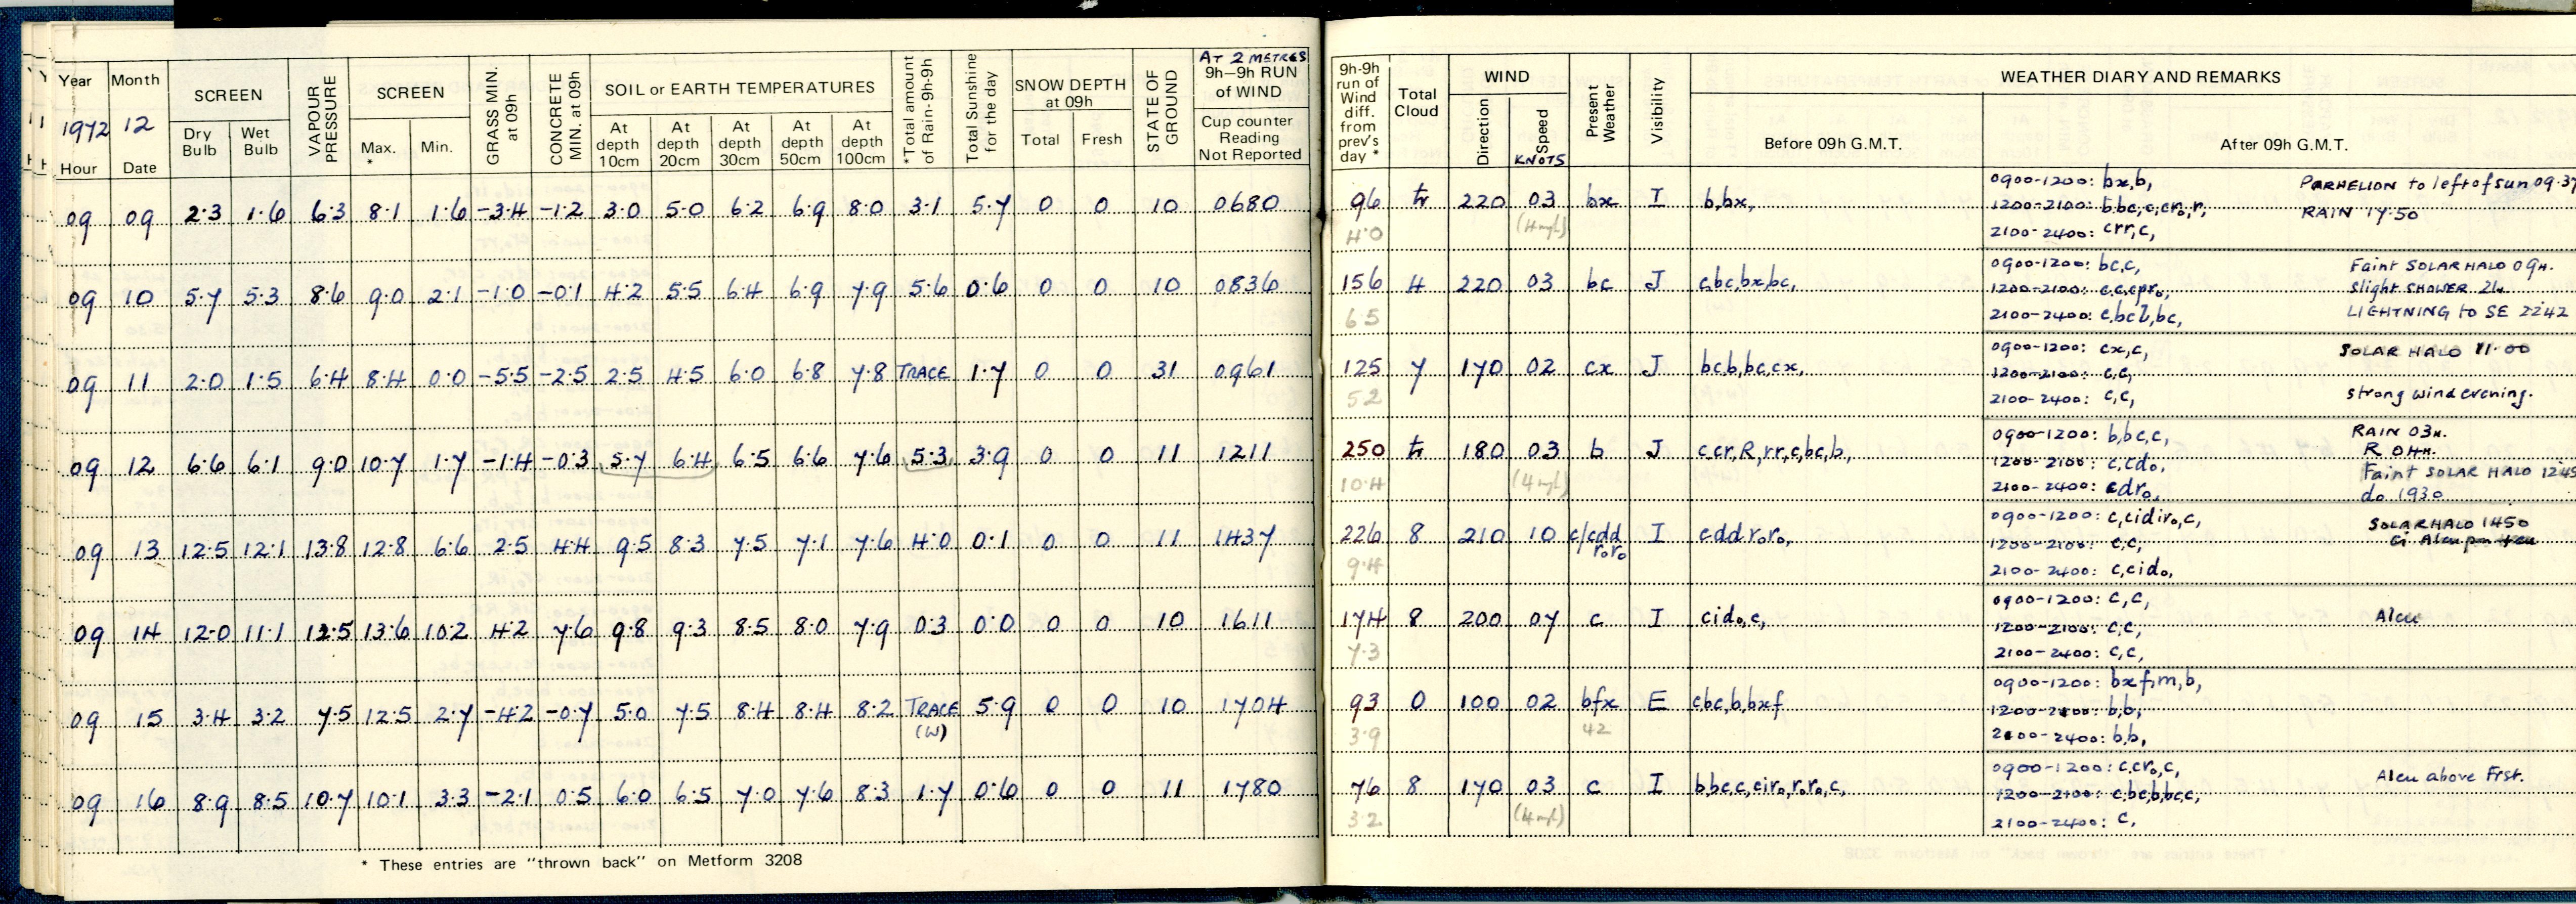 Year Month SCREEN VAPOUR PRESSURE SCREEN GRASS MIN. at 09h CONCRETE MIN. at 09h SOIL or EARTH TEMPERATURES *Total amount of Rain-9h-9h Total Sunshine for the day SNOW DEPTH at 09h STATE OF GROUND AT 2 METRES 9h–9h RUN of WIND
1972 12 Dry Bulb Wet Bulb Max. * Min. At depth 10cm At depth 20cm At depth 30cm At depth 50cm At depth 100cm Total Fresh Cup counter Reading Not Reported
Hour Date
09 09 2·3 1·6 6·3 8·1 1·6 -3·4 -1·2 3·0 5·0 6·2 6·9 8·0 3·1 5·7 0 0 10 0680
09 10 5·7 5·3 8·6 9·0 2·1 -1·0 -0·1 4·2 5·5 6·4 6·9 7·9 5·6 0·6 0 0 10 0836
09 11 2·0 1·5 6·4 8·4 0·0 -5·5 -2·5 2·5 4·5 6·0 6·8 7·8 TRACE 1·7 0 0 31 0961
09 12 6·6 6·1 9·0 10·7 1·7 -1·4 -0·3 5·7 6·4 6·5 6·6 7·6 5·3 3·9 0 0 11 1211
09 13 12·5 12·1 13·8 12·8 6·6 2·5 4·4 9·5 8·3 7·5 7·1 7·6 4·0 0·1 0 0 11 1437
09 14 12·0 11·1 12·5 13·6 10·2 4·2 7·6 9·8 9·3 8·5 8·0 7·9 0·3 0·0 0 0 10 1611
09 15 3·4 3·2 7·5 12·5 2·7 -4·2 -0·7 5·0 7·5 8·4 8·4 8·2 TRACE 5·9 0 0 10 1704
(W)
09 16 8·9 8·5 10·7 10·1 3·3 -2·1 0·5 6·0 6·5 7·0 7·6 8·3 1·7 0·6 0 0 11 1780
* These entries are "thrown back" on Metform 3208
9h-9h run of Wind diff. from prev's day * Total Cloud WIND Direction Speed KNOTS Present Weather Visibility WEATHER DIARY AND REMARKS
Before 09h G.M.T. After 09h G.M.T.
96 220 03 bx I b,bx, 0900-1200: bx,b, PARHELION to left of sun 09·37
1200-2100: b,bc,c,cr₀,r, RAIN 17·50
4·0 2100-2400: crr,c,
156 4 220 03 bc J c,bc,bx,bc, 0900-1200: bc,c, Faint SOLAR HALO 09H.
1200-2100: c,c,cpr₀, slight SHOWER 21H
6·5 2100-2400: c,bcl,bc, LIGHTNING to SE 2242
125 7 170 02 cx J bc,b,bc,cx, 0900-1200: cx,c, SOLAR HALO 11·00
1200-2100: c,c,
5·2 2100-2400: c,c, strong wind evening.
250 180 03 b J c,cr,R,rr,c,bc,b, 0900-1200: b,bc,c, RAIN 03H.
R 04H.
1200-2100: c,cd₀, Faint SOLAR HALO 1245
10·4 2100-2400: cdr₀, d₀ 1930
226 8 210 10 c/cdd r₀r₀ I cddr₀r₀, 0900-1200: c,cidir₀,c, SOLAR HALO 1450
1200-2100: c,c,
9·4 2100-2400: c,cid₀,
174 8 200 07 c I cid₀,c, 0900-1200: c,c, Alcu
1200-2100: c,c,
7·3 2100-2400: c,c,
93 0 100 02 bfx E cbc,b,bxf 0900-1200: bxf,m,b,
1200-2100: b,b,
3·9 42 2100-2400: b,b,
76 8 170 03 c I b,bc,c,cir₀,r₀r₀,c, 0900-1200: c,cr₀,c, Alcu above Frst.
1200-2100: c,bc,b,bc,c,
3·2 2100-2400: c,